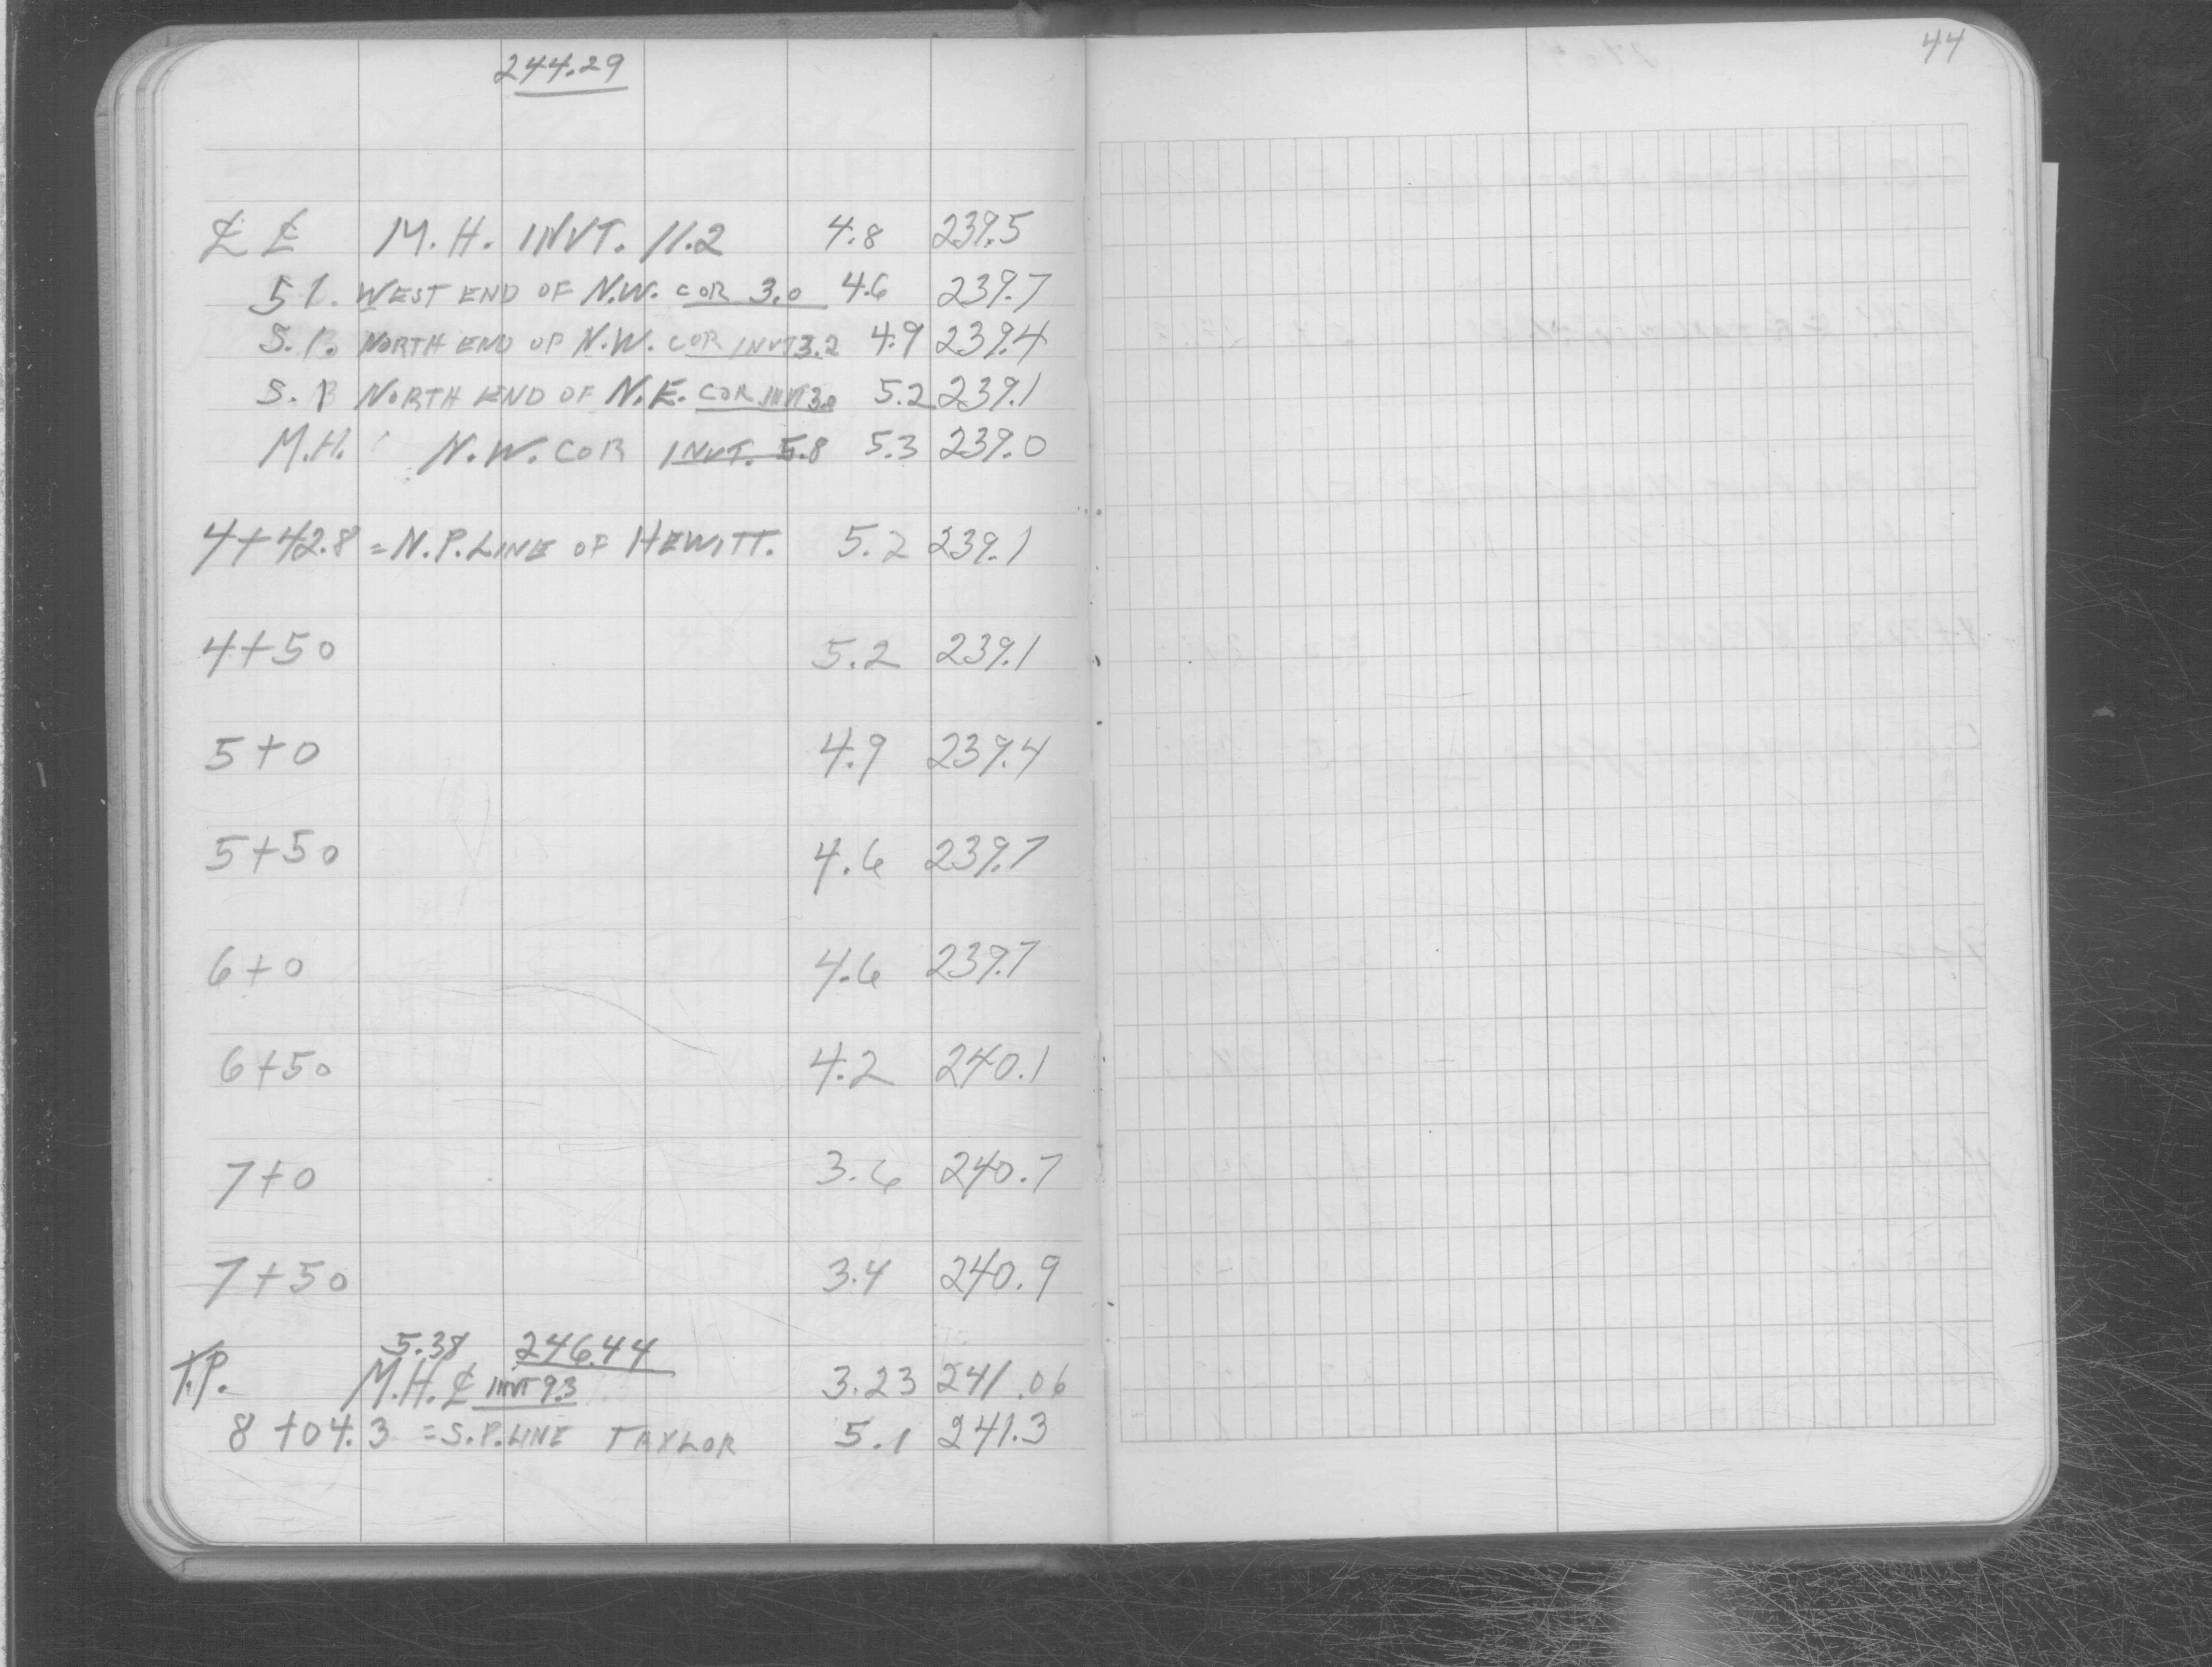 244.29
44
℄ ℄ M.H. INVT. 11.2 4.8 239.5
WEST END OF N.W. COR 3.0 4.6 239.7
S.B. NORTH END OF N.W. COR INVT 3.2 4.9 239.4
S.B NORTH END OF N.E. COR INVT 3.0 5.2 239.1
M.H. N.W. COR INVT. 5.8 5.3 239.0
4+42.8 = N.P. LINE OF HEWITT. 5.2 239.1
4+50 5.2 239.1
5+0 4.9 239.4
5+50 4.6 239.7
6+0 4.6 239.7
6+50 4.2 240.1
7+0 3.6 240.7
7+50 3.4 240.9
5.38 246.44
T.P. M.H. ℄ INVT 9.3 3.23 241.06
8+04.3 = S.P. LINE TAYLOR 5.1 241.3